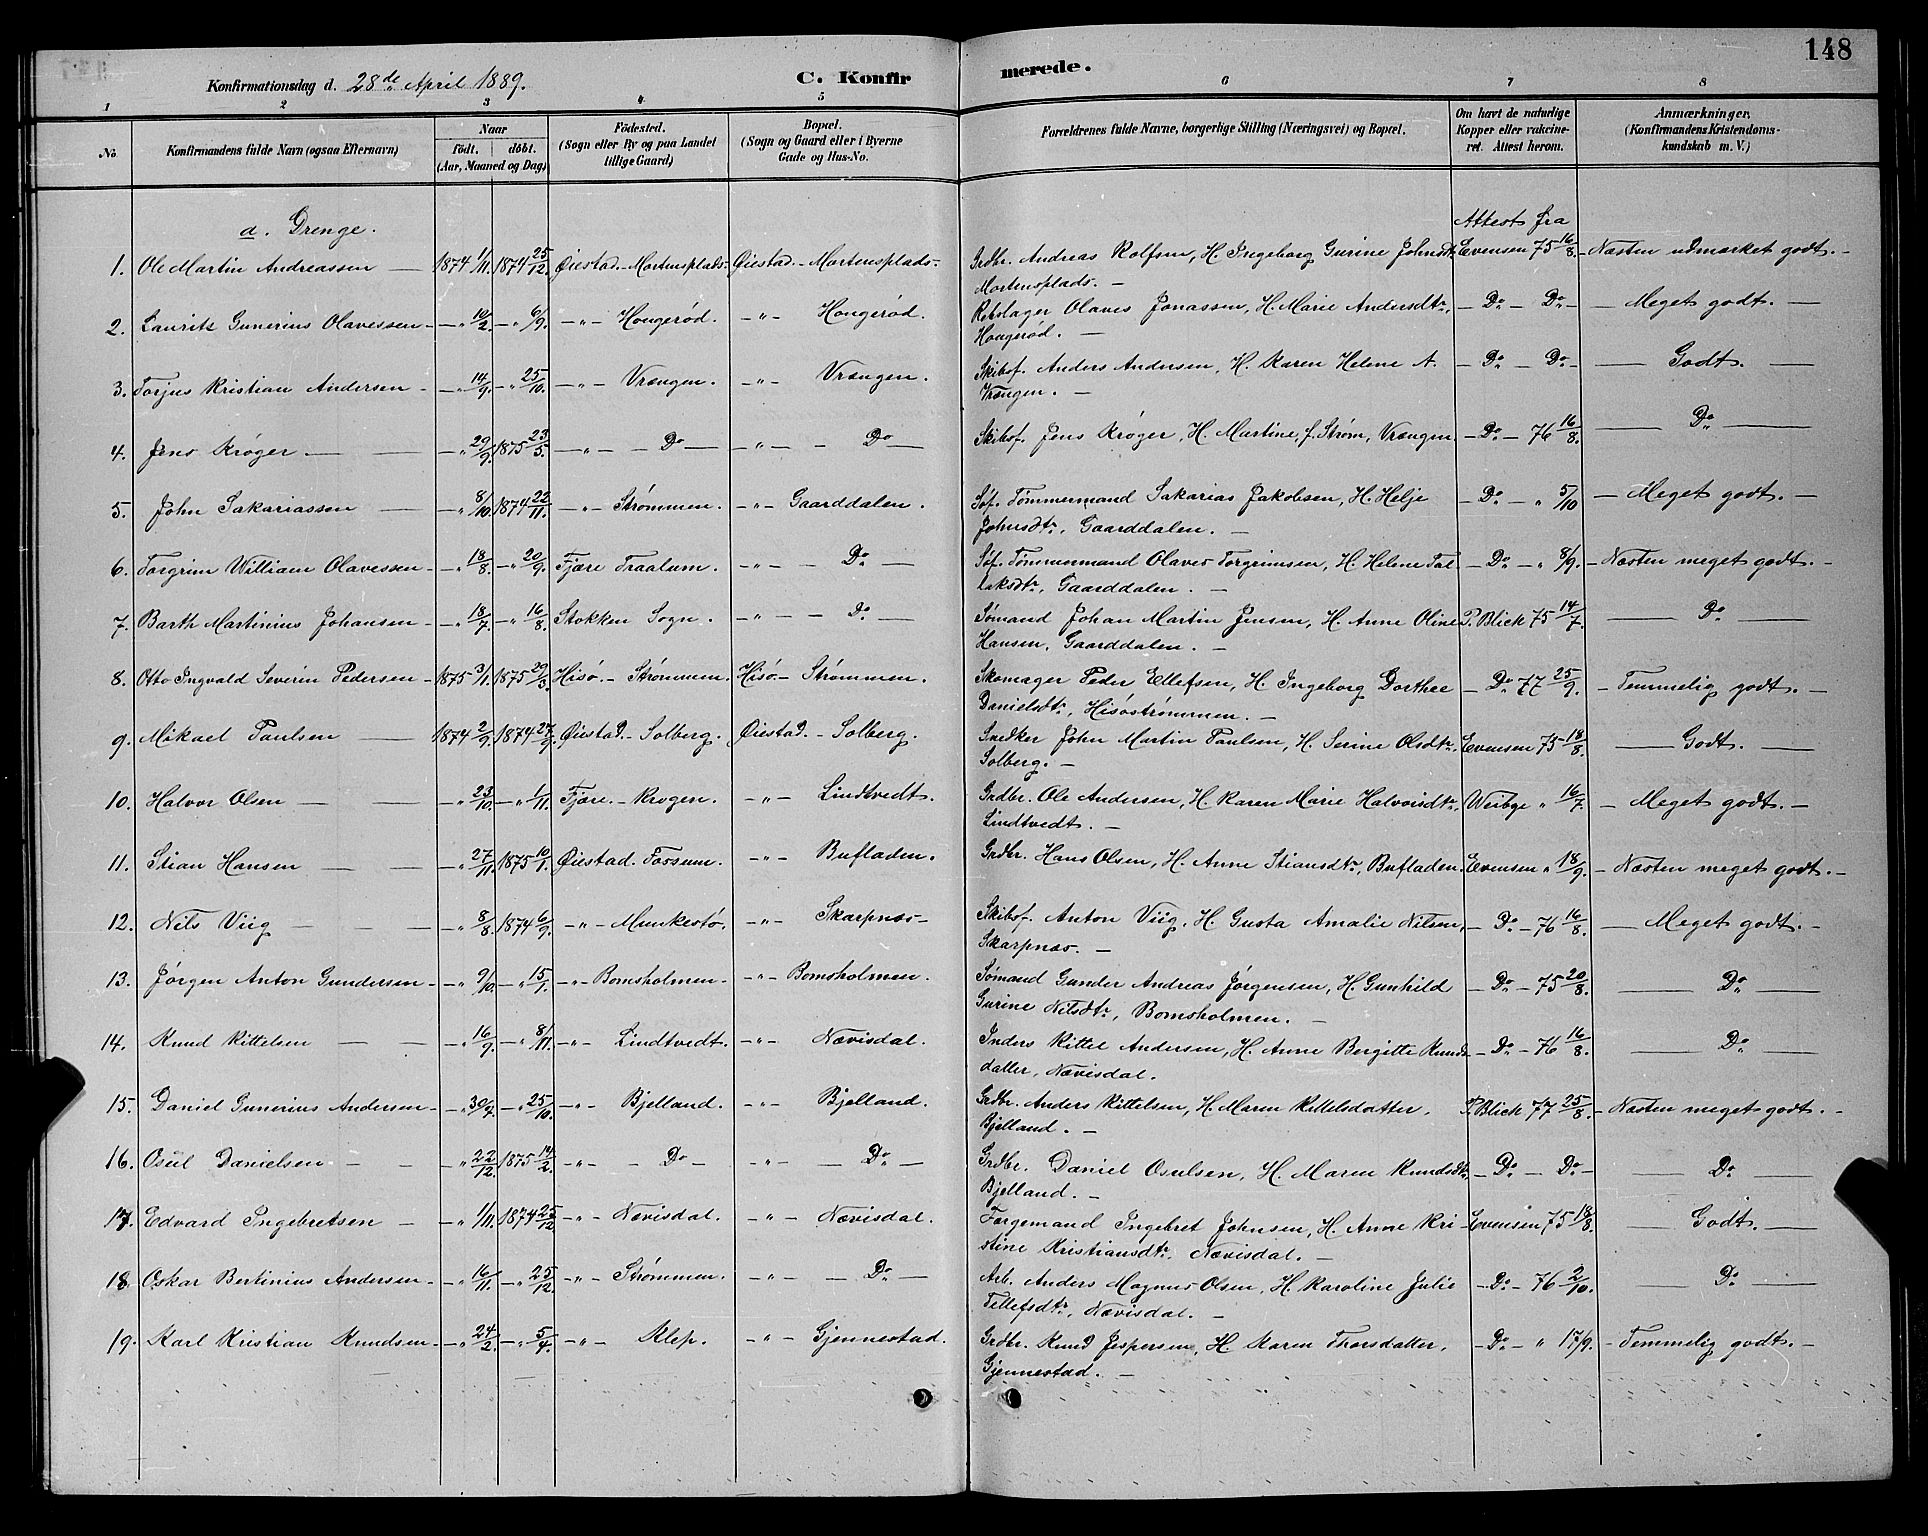 148
Konfirmationsdag d. 28de April 1889. C. Konfirmerede.
1 2 3 4 5 6 7 8
No. Konfirmandens fulde Navn (ogsaa Efternavn) Naar Födt. döbt. (Aar, Maaned og Dag) Födested. (Sogn eller By og paa Landet tillige Gaard) Bopæl. (Sogn og Gaard eller i Byerne Gade og Hus-No. Forældrenes fulde Navne, borgerlige Stilling (Næringsvei) og Bopæl. Om havt de naturlige Kopper eller vakcineret. Attest herom. Anmærkninger. (Konfirmandens Kristendomskundskab m. V.)
a. Drenge. Attest fra
1. Ole Martin Andreassen — 1874 1/11. 1874 25/12. Øiestad. - Mortensplads - Øiestad. - Mortensplads - Grdbr. Andreas Rolfsen, H. Ingeborg Gurine Johnsdtr. Evensen 75 16/8. - Næsten udmærket godt. -
Mortensplads. -
2. Laurits Gunerius Olavessen - - " 10/2. - " 6/9. - " - Hougerød. - " - Hougerød. Rebslager Olaves Jonassen, H. Marie Andersdtr. - Do - Do - - Meget godt. -
Hougerød. -
3. Torjus Kristian Andersen - - " 14/9. - " 25/10. - " - Vrængen. - " - Vrængen. Skibsf. Anders Andersen, H. Karen Helene A. - Do - Do - — Godt. —
Vrængen. -
4. Jens Krøger — - " 29/9. 1875 23/5. - " - - Do - - " - - Do - Skibsf. Jens Krøger, H. Martine, f. Strøm, Vrængen - Do - 76 16/8. — Do —
5. John Sakariassen — - " 8/10. 1874 22/11. - " - Strømmen. - " - Gaarddalen. Søf. Tømmermand Sakarias Jakobsen, H. Helje - Do - " 5/10 - Meget godt. -
Johnsdtr, Gaarddalen. -
6. Torgrim William Olavessen - - " 18/8. - " 20/9. Fjære Traalum. - " - - Do - Søf. Tømmermand Olaves Torgrimsen, H. Helene Tal - Do - " 8/9. - Næsten meget godt. -
laksdtr, Gaarddalen. -
7. Barth Martinius Johansen - - " 18/7. - " 16/8. Stokken Sogn. - " - - Do - Sømand Johan Martin Jensen, H. Anne Oline P. Blick 75 14/7. — Do —
Hansen, Gaarddalen. -
8. Otto Ingvald Severin Pedersen - 1875 3/1. 1875 29/3. Hisø. - Strømmen. Hisø. - Strømmen. Skomager Peder Ellefsen, H. Ingeborg Dorthee - Do 77 25/9. - Temmelig godt. -
Danielsdtr, Hisøstrømmen. -
9. Mikael Paulsen — 1874 2/9. 1874 27/9. Øiestad. - Solberg. Øiestad. - Solberg. Snedker John Martin Paulsen, H. Serine Olsdtr. Evensen 75 18/8. — Godt. —
Solberg. -
10. Halvor Olsen — - " 23/10. - " 1/11. Fjære. - Krogen. - " - Lindtvedt. Grdbr. Ole Andersen, H. Karen Marie Halvorsdtr. Weibye " 16/7. - Meget godt. -
Lindtvedt. -
11. Stian Hansen — - " 27/11. 1875 10/1. Øiestad. Fossum. - " - Bufladen. Grdbr. Hans Olsen, H. Anne Stiansdtr, Bufladen. Evensen " 18/9. - Næsten meget godt. -
12. Nils Viig — - " 8/8. 1874 6/9. - " - Munkestø. - " - Skarpnæs - Skibsf. Anton Viig, H. Gusta Amalie Nilsen, - Do - 76 16/8. - Meget godt. -
Skarpnæs. -
13. Jørgen Anton Gundersen - - " 9/10. - " 15/1. - " - Bomsholmen - - " - Bomsholmen. Sømand Gunder Andreas Jørgensen, H. Gunhild - Do - 75 20/8. — Do —
Gurine Nilsdtr, Bomsholmen. -
14. Knud Kittelsen — - " 16/9. - " 8/11. - " - Lindtvedt. - " - Nævisdal. Inders Kittel Andersen, H. Anne Bergitte Knuds - Do - 76 16/8. — Do —
datter, Nævisdal.
15. Daniel Gunerius Andersen - - " 30/7. - " 25/10. - " - Bjelland. - " - Bjelland. Grdbr. Anders Kittelsen, H. Maren Kittelsdatter. P. Blick 77 25/8. - Næsten meget godt. -
Bjelland. -
16. Osul Danielsen - - " 22/12. 1875 14/2. - " - - Do - - " - - Do - Grdbr. Daniel Osulsen, H. Maren Knudsdtr, - Do - Do - — Do —
Bjelland. -
17. Edvard Ingebretsen - - " 1/11. 1874 25/12. - " - Nævisdal. - " - Nævisdal. Færgemand Ingebret Johnsen, H. Anne Kri - Evensen 75 18/8. — Godt. —
stine Kristiansdtr. Nævisdal. -
18. Oskar Bertinius Andersen - - " 16/11. - " 25/12. - " - Strømmen. - " - - Do - Arb. Anders Magnus Olsen, H. Karoline Julie - Do - 76 2/10. — Do —
Tellefsdtr, Nævisdal. -
19. Karl Kristian Knudsen - - " 24/2. - " 5/4. - " - Klep. - " - Gjennestad. Grdbr. Knud Jespersen, H. Karen Thorsdatter. - Do - " 17/9. - Temmelig godt. -
Gjennestad. -